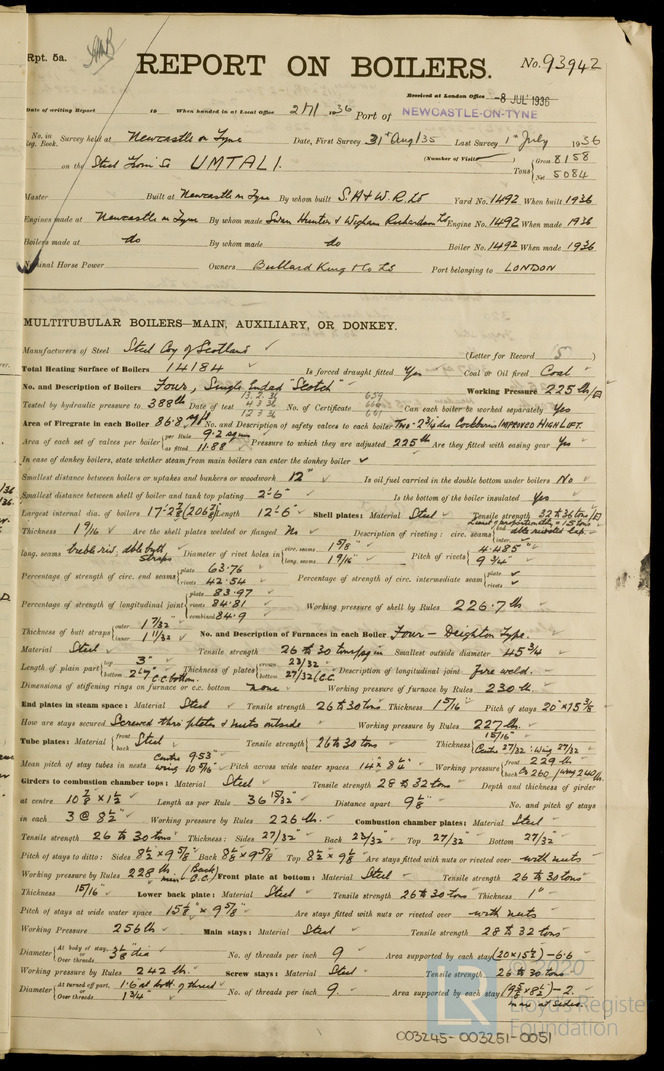 Rpt. 5a.
REPORT ON BOILERS.
No. 93942
Received at London Office -8 JUL 1936
Date of writing Report 19 When handed in at Local Office 2/7/1936 Port of NEWCASTLE-ON-TYNE
No. in Reg. Book. Survey held at Newcastle on Tyne Date, First Survey 31st Aug/35 Last Survey 1st July 1936
(Number of Visits )
on the Steel UMTALI. Tons {Gross 8158 Net 5084
Master Built at Newcastle on Tyne By whom built S.H & W.R. Ltd Yard No. 1492 When built 1936
Engines made at Newcastle on Tyne By whom made Swan Hunter & Wigham Richardson Ltd Engine No. 1492 When made 1936
Boilers made at do By whom made do Boiler No. 1492 When made 1936
Nominal Horse Power Owners Bullard King & Co Ld Port belonging to LONDON
MULTITUBULAR BOILERS—MAIN, AUXILIARY, OR DONKEY.
Manufacturers of Steel Steel Coy of Scotland (Letter for Record S )
Total Heating Surface of Boilers 14184 Is forced draught fitted Yes Coal or Oil fired Coal
No. and Description of Boilers Four, Single Ended "Scotch" Working Pressure 225 lb/
Tested by hydraulic pressure to 388 lb Date of test 13.2.36 4.3.36 12.3.36 No. of Certificate 659 660 661 Can each boiler be worked separately Yes
Area of Firegrate in each Boiler 86.8 sq ft No. and Description of safety valves to each boiler Two - 2¾ dia Cockburns IMPROVED HIGH LIFT.
Area of each set of valves per boiler {per Rule 9.2 sq ins as fitted 11.88 Pressure to which they are adjusted 225 lb Are they fitted with easing gear Yes
In case of donkey boilers, state whether steam from main boilers can enter the donkey boiler ✓
Smallest distance between boilers or uptakes and bunkers or woodwork 12" Is oil fuel carried in the double bottom under boilers No
Smallest distance between shell of boiler and tank top plating 2'-6" Is the bottom of the boiler insulated Yes
Largest internal dia. of boilers Length 12'-6" Shell plates: Material Steel Tensile strength 32 to 36 tons
Thickness 1 9/16 Are the shell plates welded or flanged No Description of riveting: circ. seams {end dble riveted lap. inter.
long. seams treble riv. dble butt straps Diameter of rivet holes in {circ. seams 1 5/8" long. seams 1 9/16" Pitch of rivets { 4.485" 9¾"
Percentage of strength of circ. end seams {plate 63.76 rivets 42.54 Percentage of strength of circ. intermediate seam {plate rivets
Percentage of strength of longitudinal joint {plate 83.97 rivets 84.81 combined 84.9 Working pressure of shell by Rules 226.7 lb
Thickness of butt straps {outer 1 7/32" inner 1 11/32 No. and Description of Furnaces in each Boiler Four - Deighton Type.
Material Steel Tensile strength 26 to 30 tons/sq in Smallest outside diameter 45¾
Length of plain part {top 3" bottom 2'-7" C.C. bottom. Thickness of plates {crown 23/32 bottom 27/32 (C.C. Description of longitudinal joint Fire weld.
Dimensions of stiffening rings on furnace or c.c. bottom none Working pressure of furnace by Rules 230 lb.
End plates in steam space: Material Steel Tensile strength 26 to 30 tons Thickness 1 5/16" Pitch of stays 20" × 15 3/8
How are stays secured Screwed thro plates & nuts outside Working pressure by Rules 227 lb.
Tube plates: Material {front back Steel Tensile strength { 26 to 30 tons Thickness { 15/16" Centre 27/32: Wing 27/32
Mean pitch of stay tubes in nests Centre 9.53" wing 10 5/16" Pitch across wide water spaces Working pressure {front 229 lb back Cr 260 / wing 240 lb.
Girders to combustion chamber tops: Material Steel Tensile strength 28 to 32 tons Depth and thickness of girder
at centre 10 7/8 × 1½ Length as per Rule 36 15/32" Distance apart 9 1/8" No. and pitch of stays
in each 3 @ 8½" Working pressure by Rules 226 lb. Combustion chamber plates: Material Steel
Tensile strength 26 to 30 tons Thickness: Sides 27/32" Back 23/32" Top 27/32" Bottom 27/32"
Pitch of stays to ditto: Sides 8½" × 9 5/8" Back 8 5/8 × 9 5/8" Top 8½" × 9 1/8 Are stays fitted with nuts or riveted over with nuts
Working pressure by Rules 228 lb min (Back C.C.) Front plate at bottom: Material Steel Tensile strength 26 to 30 tons
Thickness 15/16" Lower back plate: Material Steel Tensile strength 26 to 30 tons Thickness 1"
Pitch of stays at wide water space 15 1/8" × 9 5/8" Are stays fitted with nuts or riveted over with nuts
Working Pressure 256 lb Main stays: Material Steel Tensile strength 28 to 32 tons
Diameter {At body of stay, or Over threads. 3 1/8" dia No. of threads per inch 9 Area supported by each stay (20 × 15½) - 6.6
Working pressure by Rules 242 lb. Screw stays: Material Steel Tensile strength 26 to 30 tons
Diameter {At turned off part, or Over threads 1.6 at bott. of thread 1¾" No. of threads per inch 9. Area supported by each stay (9 5/8 × 8½) - 2. max at sides.
© 2020
LR
Lloyd's Register
Foundation
003245-003251-0051